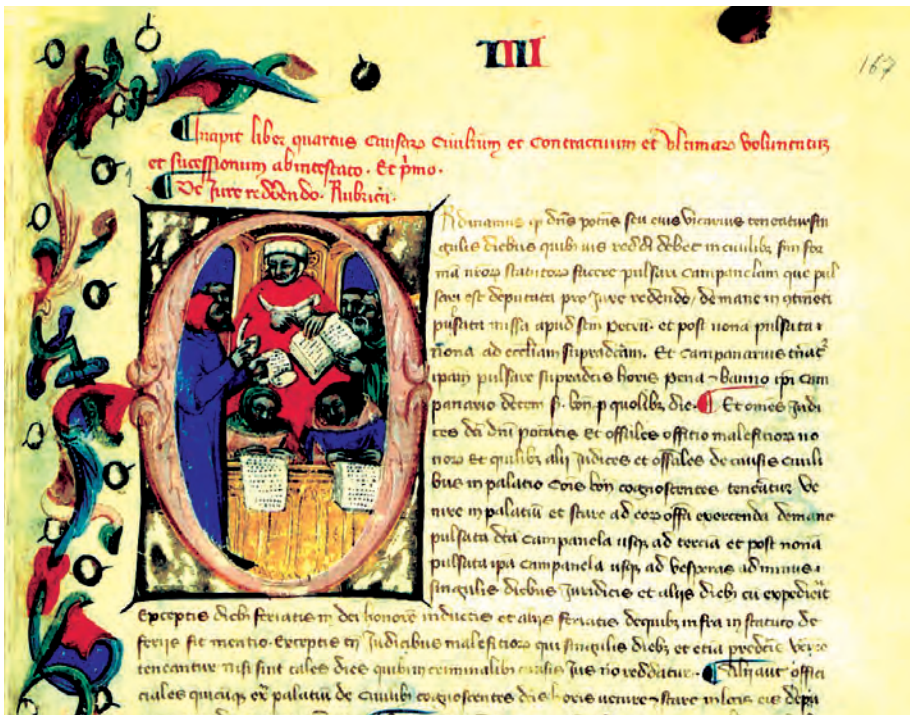 IIII
167
Incipit liber quartus Causaro Civilium et Contractuum et Ultimaro Voluntatu
et sucessionum ab intestato. Et pmo.
De Jure reddendo. Rubrica.
Rdinamus q dns potas seu eius vicarius teneatur sin
gulis diebus quibus reddi debet in civilibz scdm for
ma nroro statutoro facere pulsari Campanelam que pul
sari est deputata pro Jure redendo, de mane in
pulsata missa apud scm petru. et post nona pulsata
nona ad eccliam supradcam. Et Campanarius
ipam pulsare supradcis horis pena banno ipi Cam
panario decem s. bon p quolibz die. Et omes Judi
ces dci dni potatis et offitiales officio malefitioro no
noro et quilibz alij Judices et offales de causis Civili
bus in palatio Cois bon cognoscentes teneatur ve
nire in palatiu et stare ad eoro offa exercenda de mane
pulsata dca Campanela usq ad tercia et post nona
pulsata ipa Campanela usq ad vesperas ad minus
singulis diebus Juridicis et alijs dieb cu expedierit
Exceptis dieb feriatis in dei honore inductis et alijs feriatis de quibz infra in statuto de
ferijs fit mentio. Exceptis tn Judicibus malefitioro qui singulis dieb et etia predcis vere
teneantur nisi sint tales dies quibz in criminalibz Jus no reddatur. Alij aut offi
ciales quicuq ex palatiu de Civilibz cognoscentes dcis horis venire stare in locis eis depu